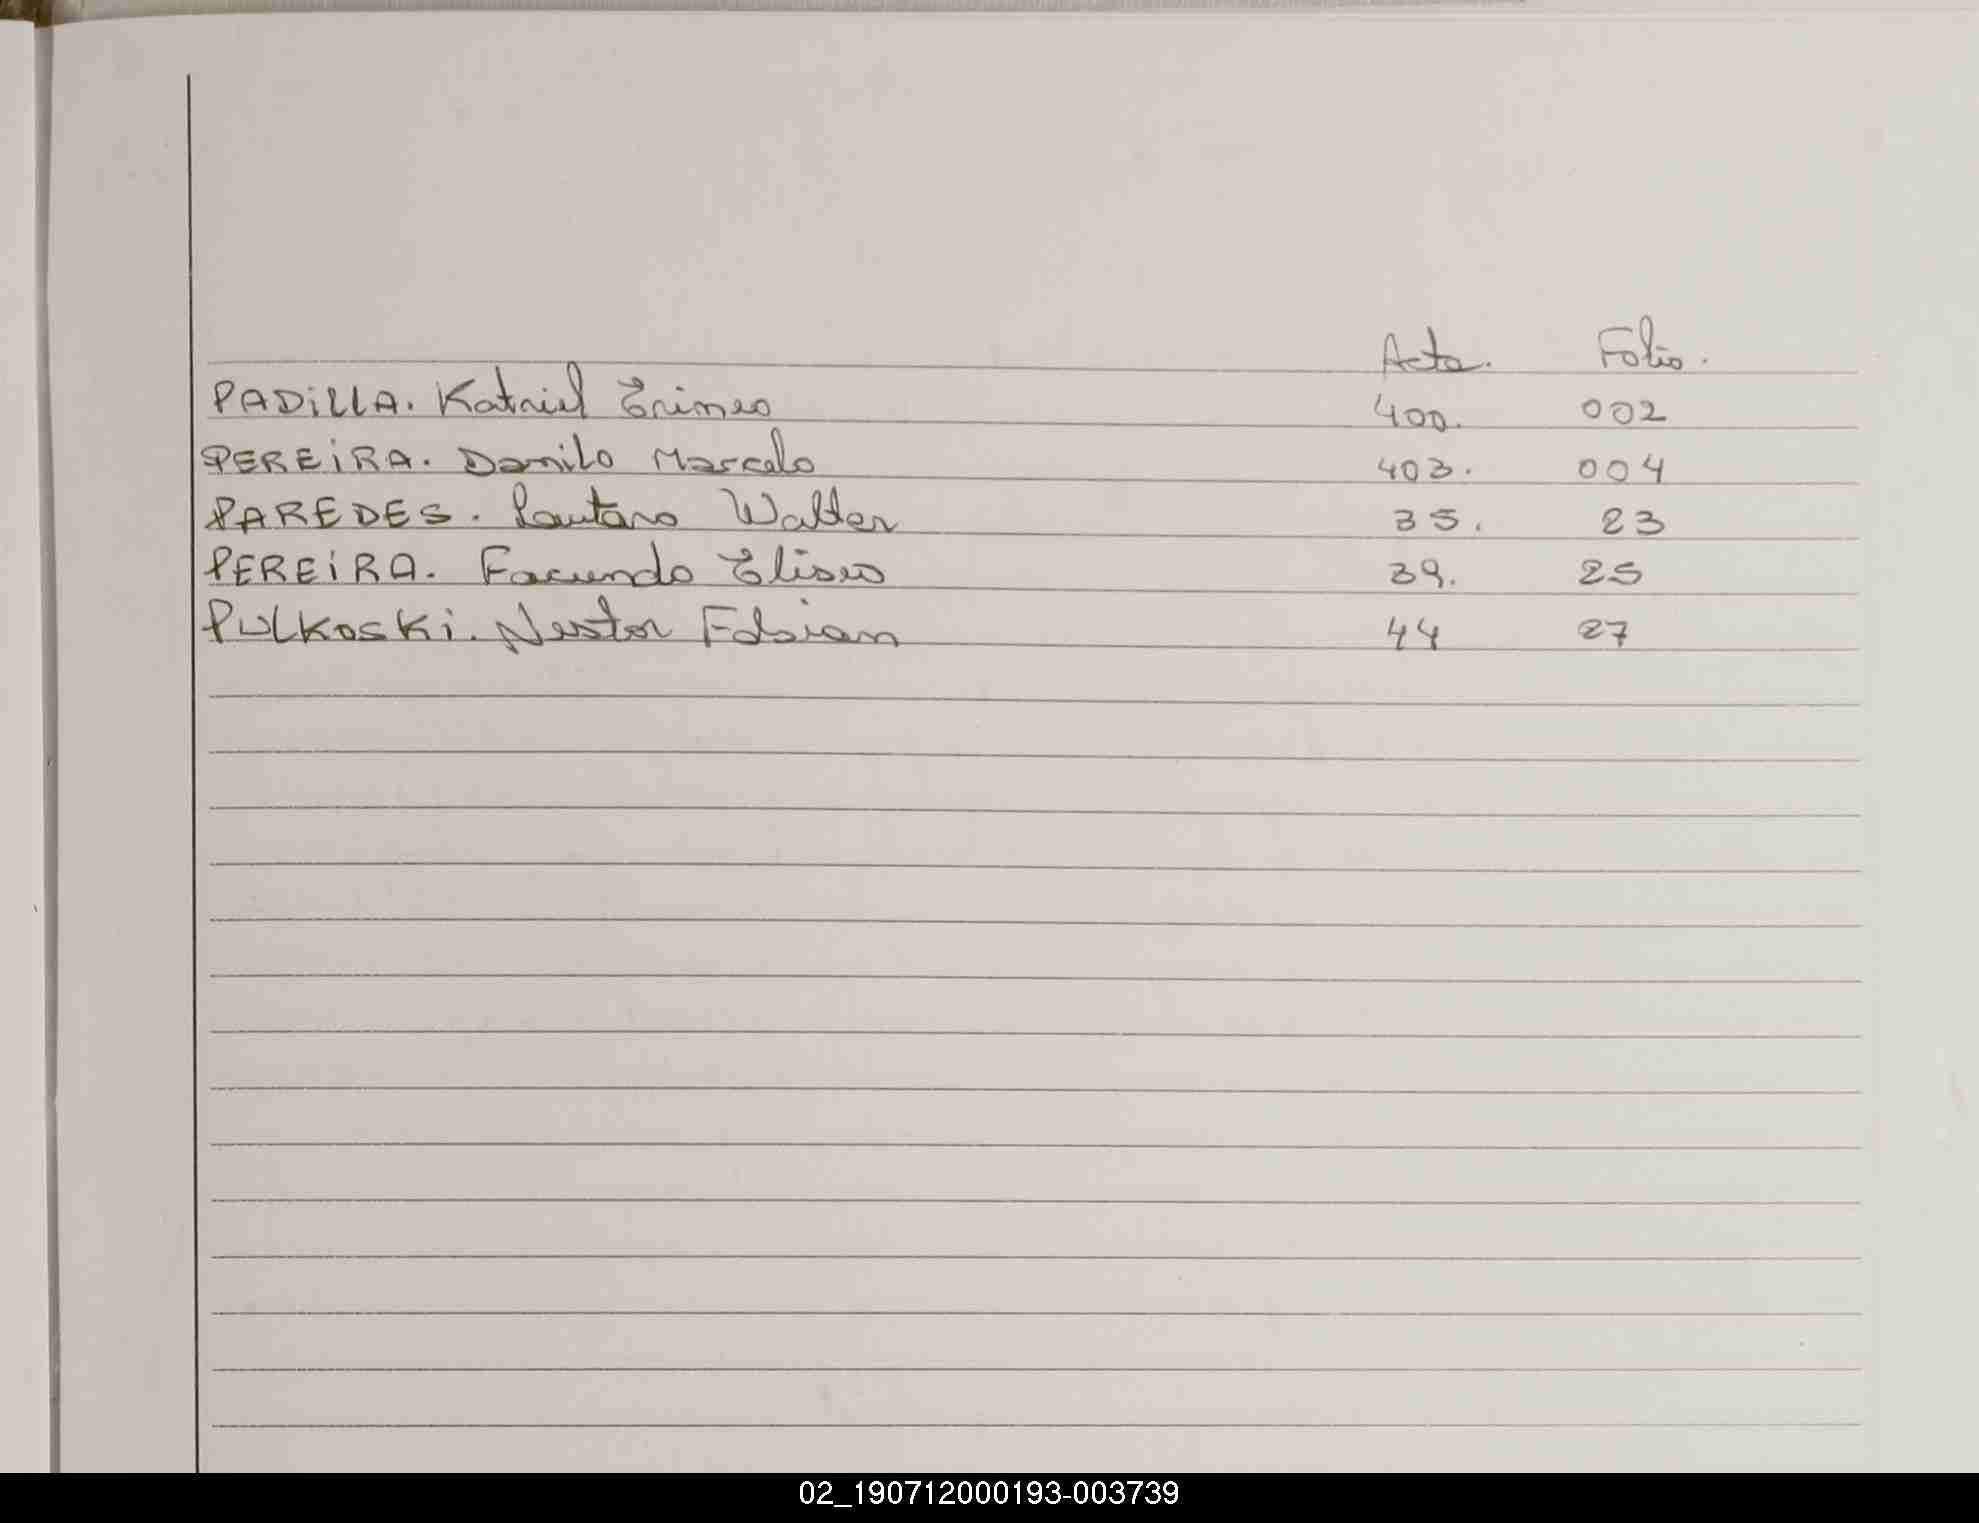 Acta. Folio.
PADiLLA. Katriel Erineo 400. 002
PEREiRA. Danilo Marcelo 403. 004
PAREDES. Lautaro Walter 35. 23
PEREiRA. Facundo Eliseo 39. 25
PULKOSKi. Nestor Fabian 44 27
02_190712000193-003739